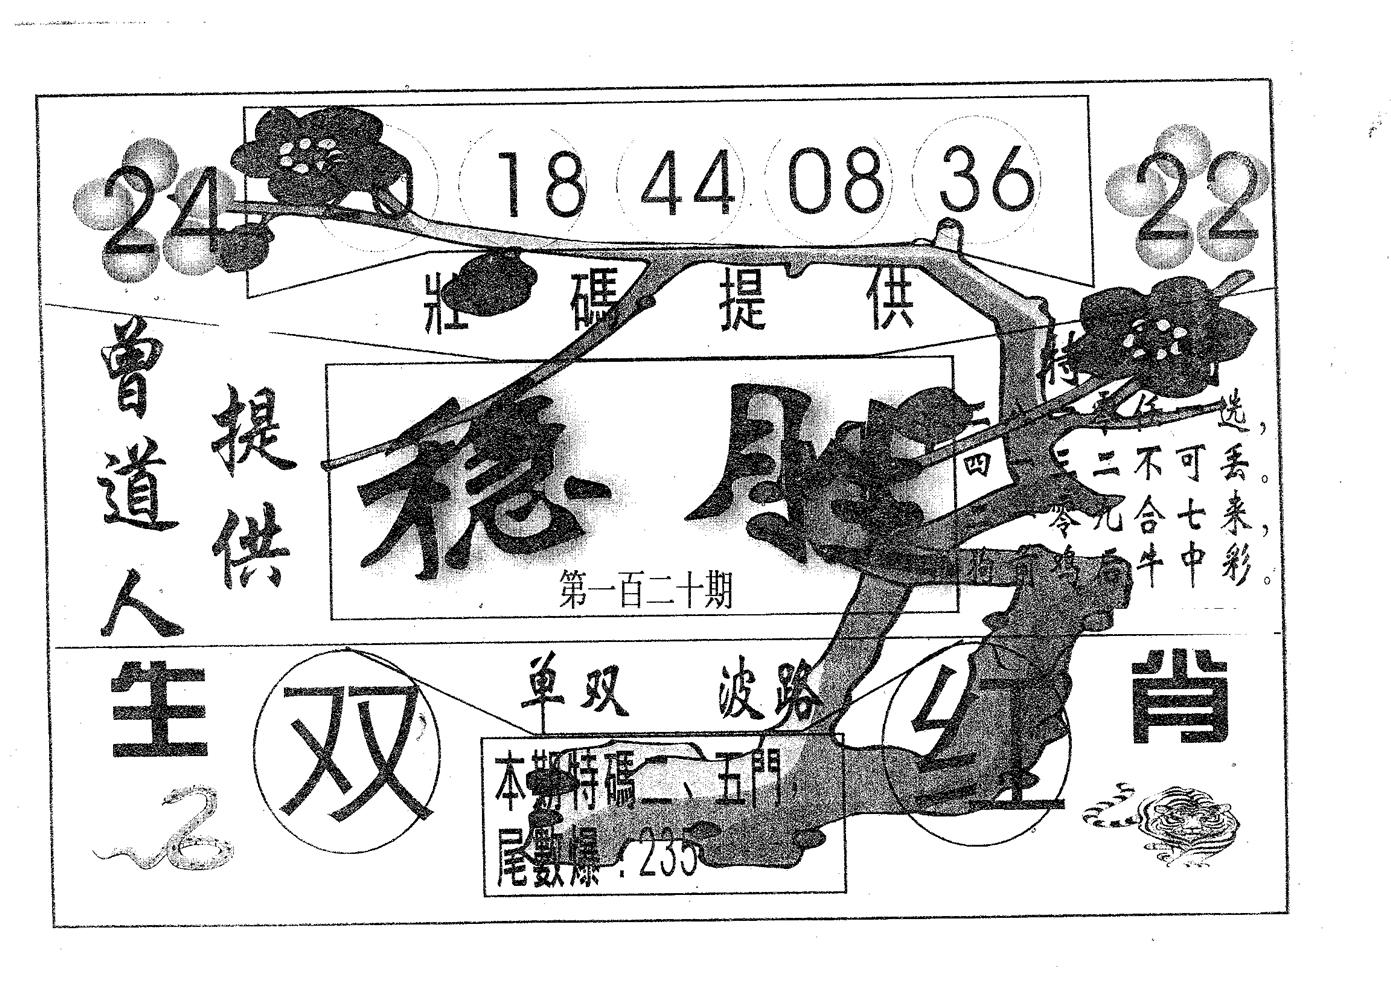 24 18 44 08 36 22
壯碼提供
曾道人
提供
穩勝
第一百二十期
特
选，
四一三二不可丢。
零九合七来，
狗 鸡 牛中彩。
生
双
单双 波路
红
肖
本期特碼二、五門，
尾數爆：235